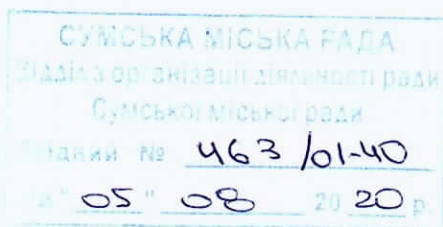 СУМСЬКА МІСЬКА РАДА
Відділ з організації діяльності ради
Сумської міської ради
№ 463/01-40
" 05 " 08 20 20 р.